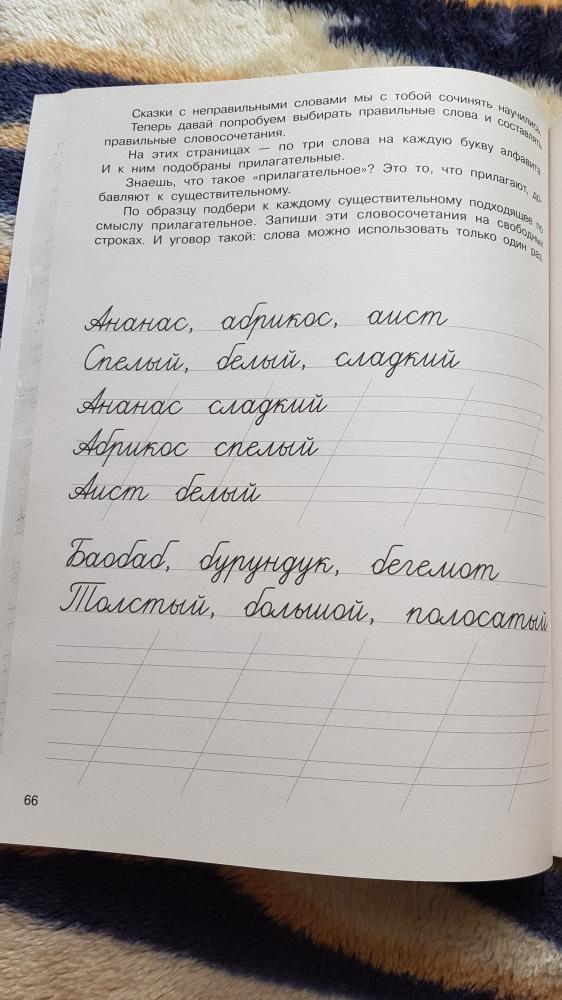 Сказки с неправильными словами мы с тобой сочинять научились.
Теперь давай попробуем выбирать правильные слова и составлять
правильные словосочетания.
На этих страницах — по три слова на каждую букву алфавита.
И к ним подобраны прилагательные.
Знаешь, что такое «прилагательное»? Это то, что прилагают, до-
бавляют к существительному.
По образцу подбери к каждому существительному подходящее по
смыслу прилагательное. Запиши эти словосочетания на свободных
строках. И уговор такой: слова можно использовать только один раз.
Ананас, абрикос, аист
Спелый, белый, сладкий
Ананас сладкий
Абрикос спелый
Аист белый
Баобаб, бурундук, бегемот
Толстый, большой, полосатый
66